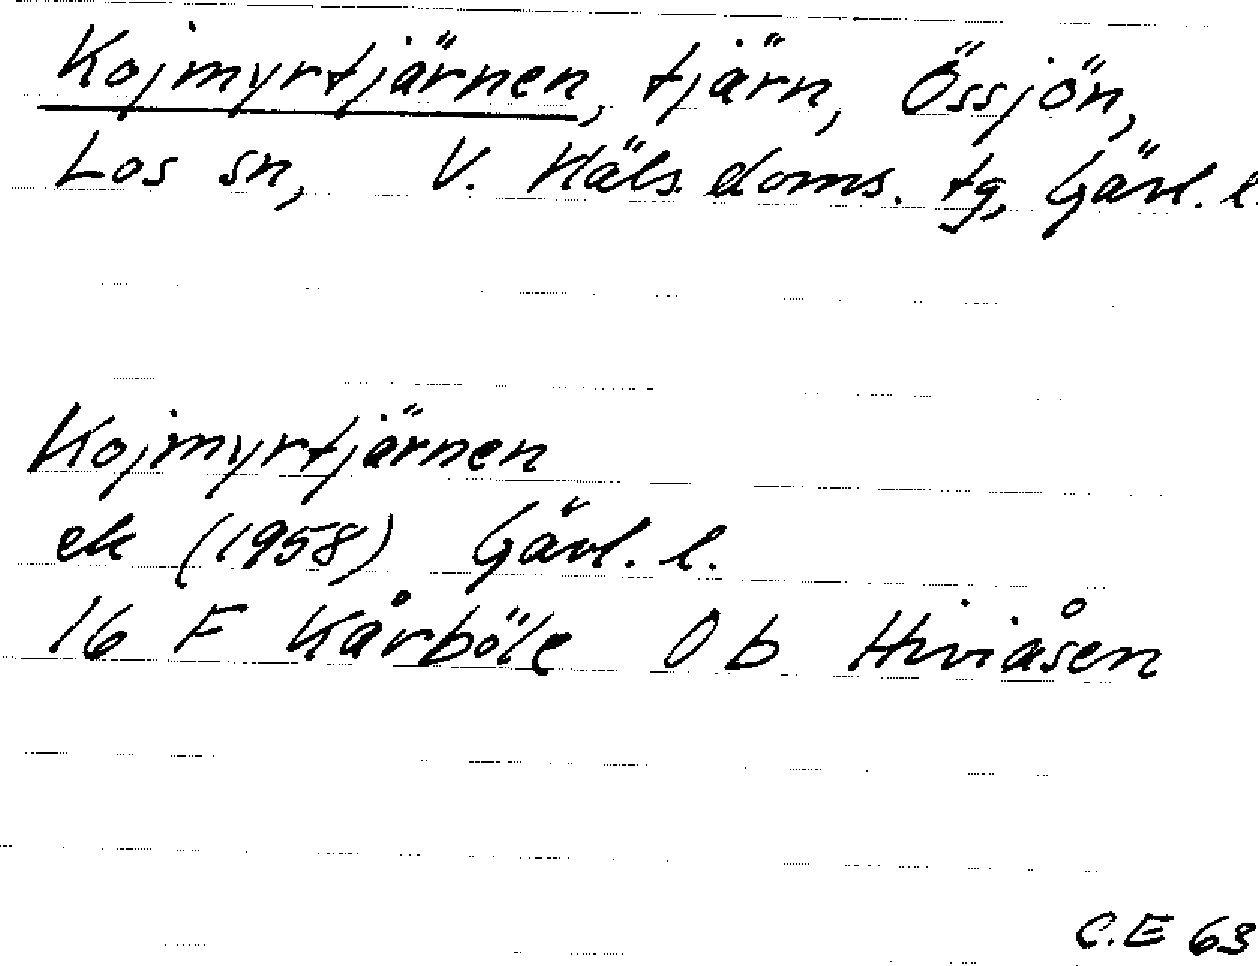 Kojmyrtjärnen, tjärn, Össjön,
Los sn, V. Häls. doms. tg, Gävl. l.
Kojmyrtjärnen
ek (1958) Gävl. l.
16 F Kårböle 0 b Hiviåsen
C.E 63